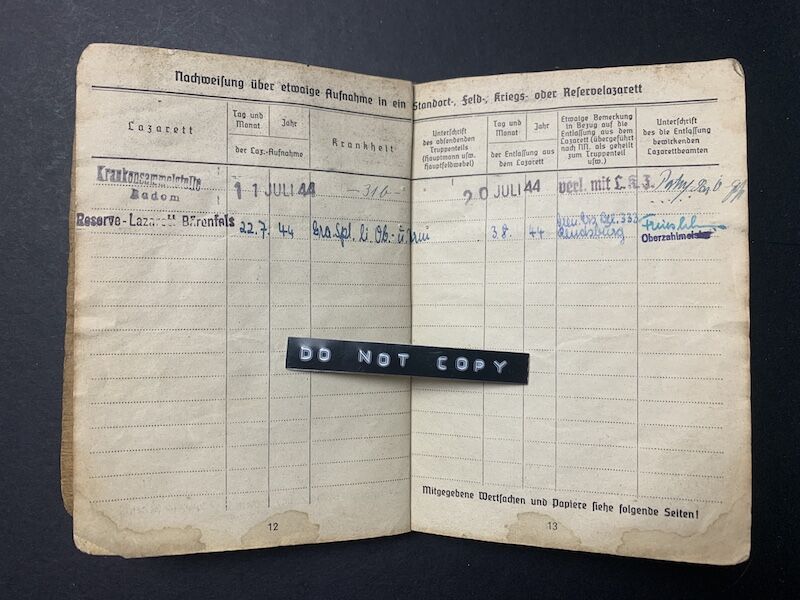 Nachweisung über etwaige Aufnahme in ein Standort-, Feld-, Kriegs- oder Reservelazarett
Lazarett
Tag und
Monat
Jahr
der Laz.-Aufnahme
Krankheit
Unterschrift
des absendenden
Truppenteils
(Hauptmann usw.
Hauptfeldwebel)
Tag und
Monat
Jahr
der Entlassung aus
dem Lazarett
Etwaige Bemerkung
in Bezug auf die
Entlassung aus dem
Lazarett (übergeführt
nach NN. als geheilt
zum Truppenteil
usw.)
Unterschrift
des die Entlassung
bewirkenden
Lazarettbeamten
Krankensammelstelle
Radom
11 JULI 44
-310-
20 JULI 44
verl. mit L.K.Z.
Reserve-Lazarett Bärenfels
22.7. 44
Gra. Spl. li. Ob.- u.
3.8. 44
333
Rendsburg
Oberzahlmeister
DO NOT COPY
Mitgegebene Wertsachen und Papiere siehe folgende Seiten!
12
13